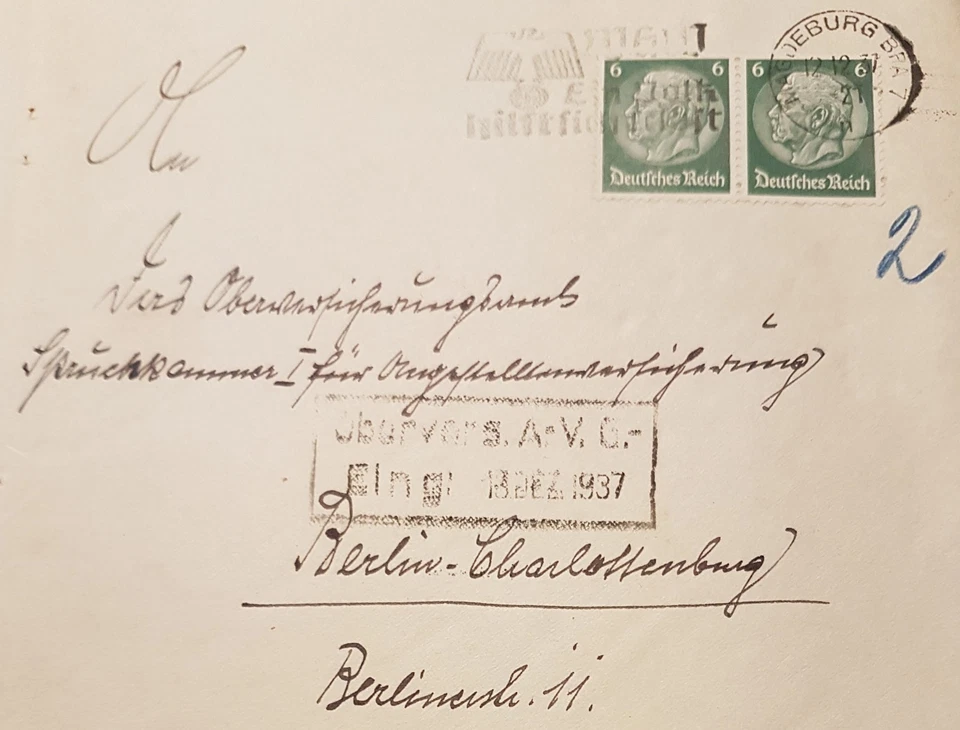 6 6 6 6
Deutsches Reich Deutsches Reich
MAGDEBURG BRA 7
12.12.37
Ein Volk
hilft sich selbst
2
An
das Oberversicherungsamt
Spruchkammer I für Angestelltenversicherung
Obervers. A-V. G.-
Eing. 13 DEZ. 1937
Berlin-Charlottenburg
Berlinerstr. 11.